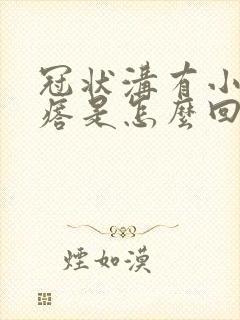 冠狀溝有小
痞是怎麼回
煙如漠